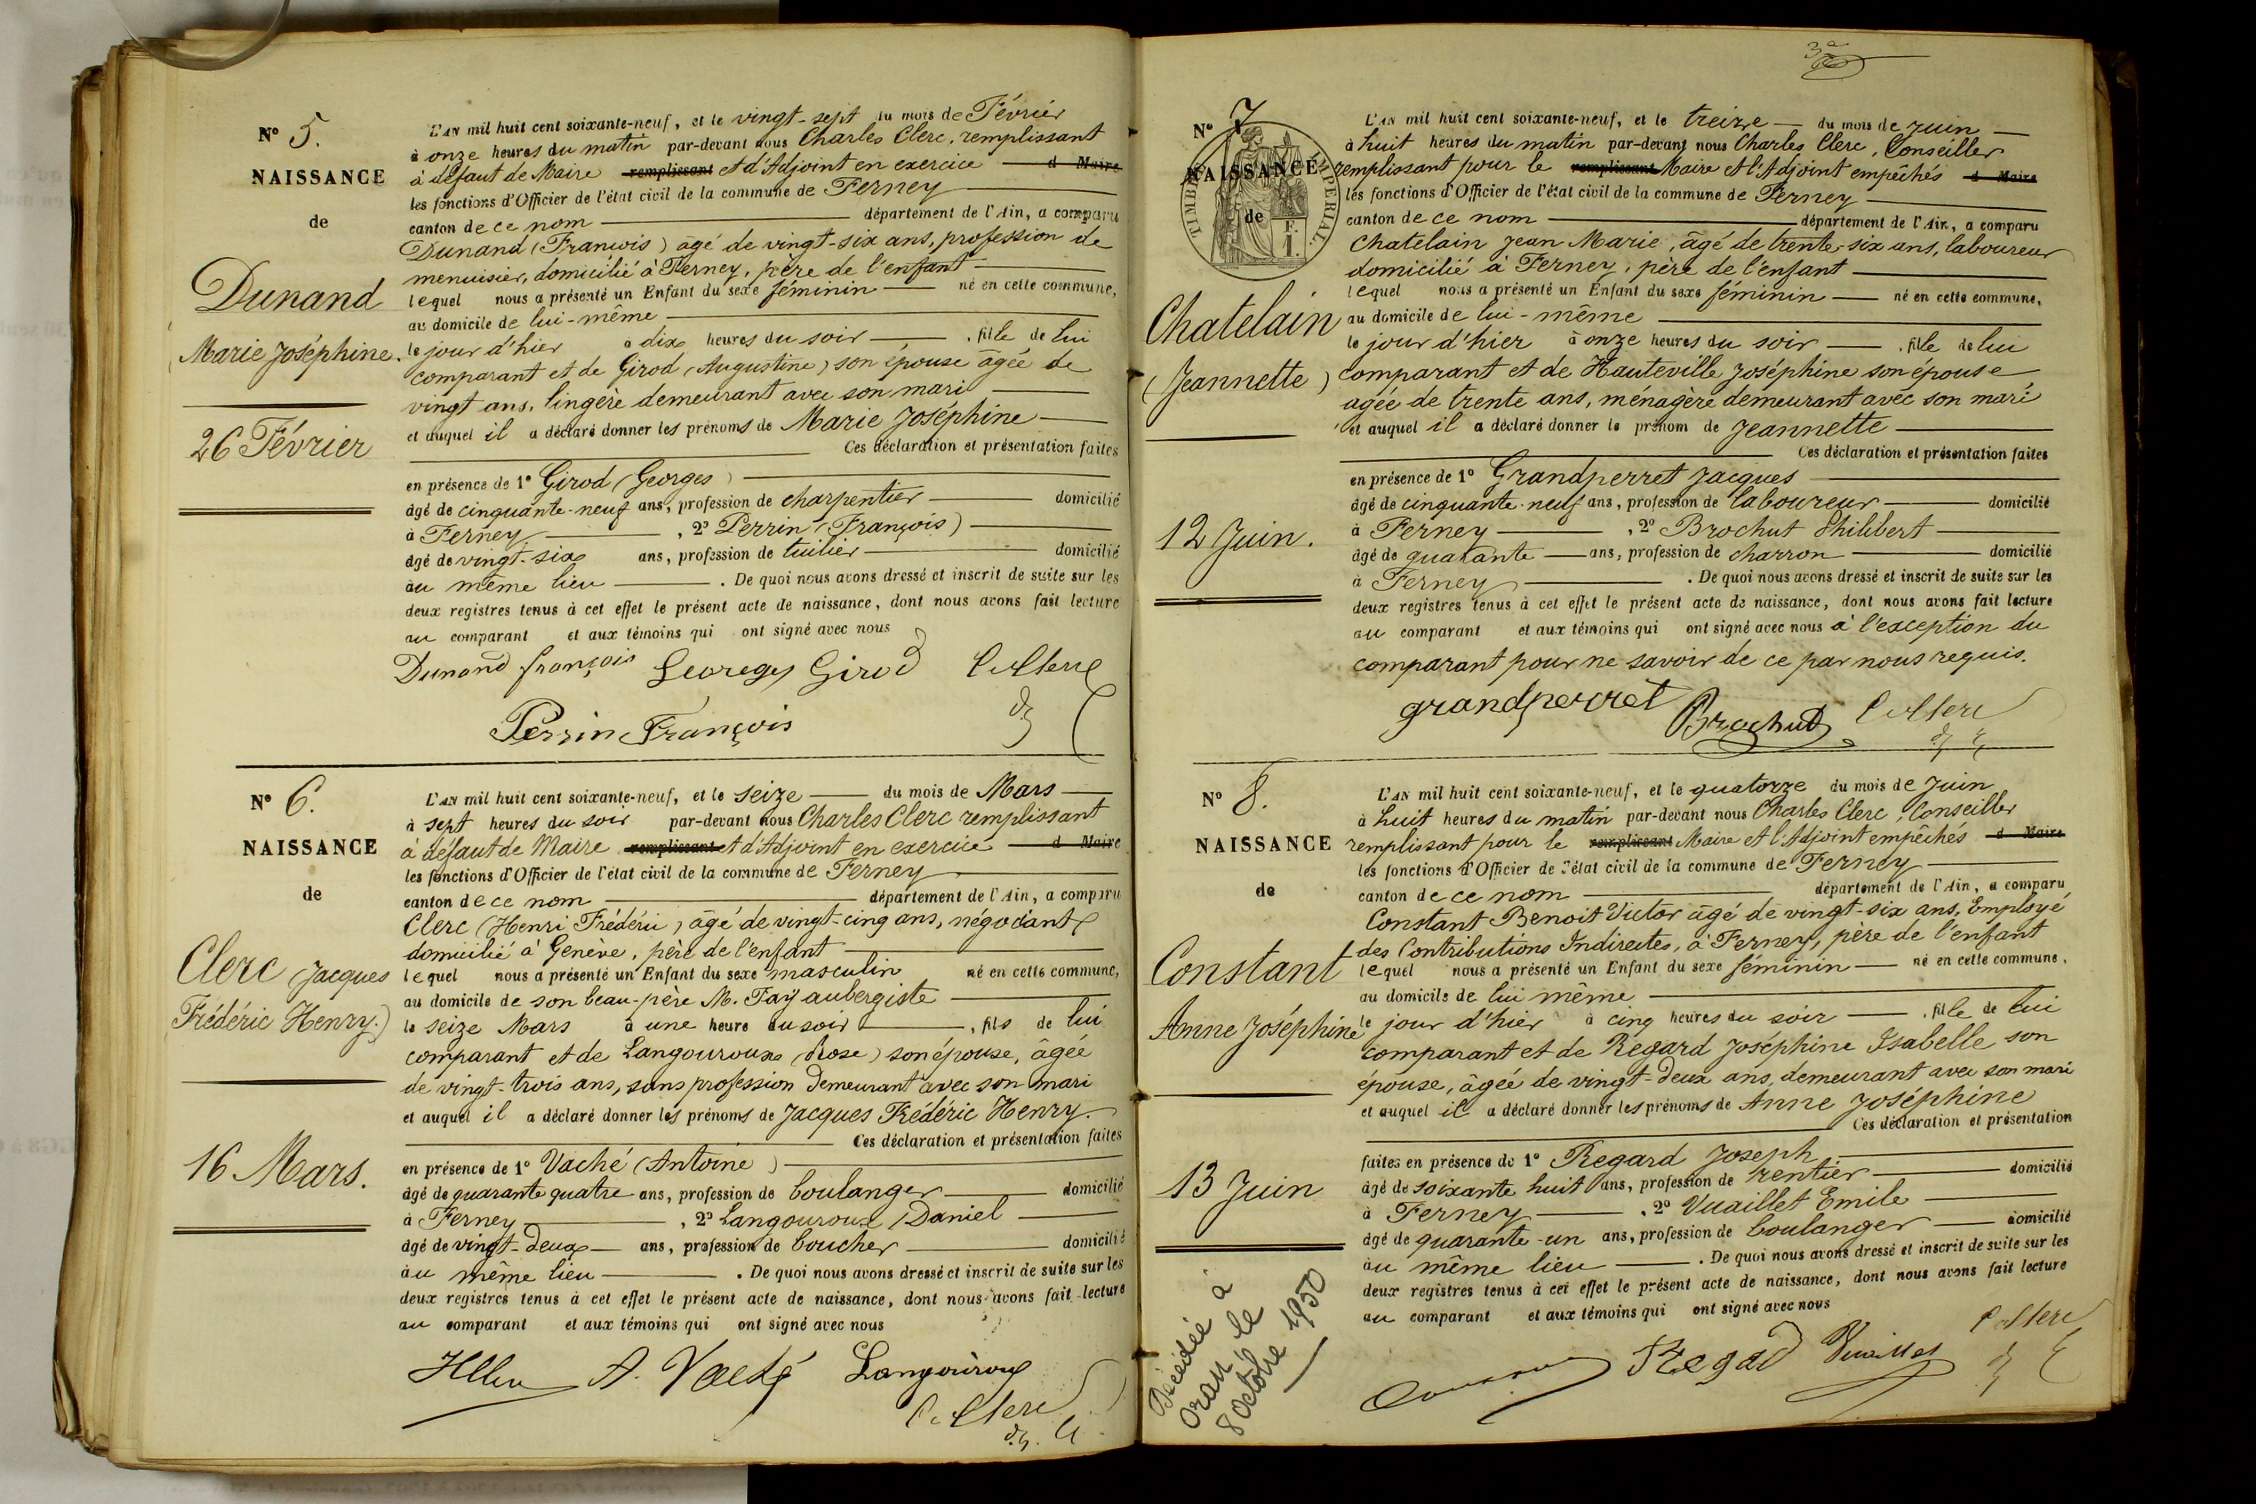 N° 5.
NAISSANCE
de
Dunand
Marie Joséphine.
26 Février
L'AN mil huit cent soixante-neuf, et le vingt-sept du mois de Février
à onze heures du matin par-devant nous Charles Clerc, remplissant
à défaut de Maire remplissant et d'Adjoint en exercice d Maire
les fonctions d'Officier de l'état civil de la commune de Ferney
canton de ce nom département de l'Ain, a comparu
Dunand (François) âgé de vingt-six ans, profession de
menuisier, domicilié à Ferney, père de l'enfant
lequel nous a présenté un Enfant du sexe féminin né en cette commune,
au domicile de lui-même
le jour d'hier à dix heures du soir, fille de lui
comparant et de Girod (Augustine) son épouse âgée de
vingt ans, lingère demeurant avec son mari
et auquel il a déclaré donner les prénoms de Marie Joséphine
Ces déclaration et présentation faites
en présence de 1° Girod (Georges)
âgé de cinquante-neuf ans, profession de charpentier domicilié
à Ferney, 2° Perrin (François)
âgé de vingt-six ans, profession de tuilier domicilié
au même lieu. De quoi nous avons dressé et inscrit de suite sur les
deux registres tenus à cet effet le présent acte de naissance, dont nous avons fait lecture
au comparant et aux témoins qui ont signé avec nous
Dunand françois Georges Girod C. Clerc
Perrin François
N° 6.
NAISSANCE
de
Clerc (Jacques
Frédéric Henry.)
16 Mars.
L'AN mil huit cent soixante-neuf, et le seize du mois de Mars
à sept heures du soir par-devant nous Charles Clerc remplissant
à défaut de Maire remplissant et d'Adjoint en exercice d Maire
les fonctions d'Officier de l'état civil de la commune de Ferney
canton de ce nom département de l'Ain, a comparu
Clerc (Henri Frédéric) âgé de vingt-cinq ans, négociant
domicilié à Genève, père de l'enfant
lequel nous a présenté un Enfant du sexe masculin né en cette commune,
au domicile de son beau-père M. Fay aubergiste
le seize Mars à une heure du soir, fils de lui
comparant et de Langouroux (Rose) son épouse, âgée
de vingt-trois ans, sans profession demeurant avec son mari
et auquel il a déclaré donner les prénoms de Jacques Frédéric Henry.
Ces déclaration et présentation faites
en présence de 1° Vaché (Antoine)
âgé de quarante quatre ans, profession de boulanger domicilié
à Ferney, 2° Langouroux (Daniel
âgé de vingt-deux ans, profession de boucher domicilié
au même lieu. De quoi nous avons dressé et inscrit de suite sur les
deux registres tenus à cet effet le présent acte de naissance, dont nous avons fait lecture
au comparant et aux témoins qui ont signé avec nous
A. Vaché Langouroux
C. Clerc
N° 7
NAISSANCE
de
TIMBRE IMPÉRIAL.
F.
1.
Chatelain
(Jeannette)
12 Juin.
L'AN mil huit cent soixante-neuf, et le treize du mois de Juin
à huit heures du matin par-devant nous Charles Clerc, Conseiller
remplissant pour le remplissant Maire et l'Adjoint empêchés d Maire
les fonctions d'Officier de l'état civil de la commune de Ferney
canton de ce nom département de l'Ain, a comparu
Chatelain Jean Marie, âgé de trente-six ans, laboureur
domicilié à Ferney, père de l'enfant
lequel nous a présenté un Enfant du sexe féminin né en cette commune,
au domicile de lui-même
le jour d'hier à onze heures du soir, fille de lui
comparant et de Hauteville Joséphine son épouse
agée de trente ans, ménagère demeurant avec son mari
et auquel il a déclaré donner le prénom de Jeannette
Ces déclaration et présentation faites
en présence de 1° Grandperret Jacques
âgé de cinquante-neuf ans, profession de laboureur domicilié
à Ferney, 2° Brochut Philibert
âgé de quarante ans, profession de charron domicilié
à Ferney. De quoi nous avons dressé et inscrit de suite sur les
deux registres tenus à cet effet le présent acte de naissance, dont nous avons fait lecture
au comparant et aux témoins qui ont signé avec nous à l'exception du
comparant pour ne savoir de ce par nous requis.
grandperret Brochut C. Clerc
N° 8.
NAISSANCE
de
Constant
Anne Joséphine
13 Juin
Décédée à
Oran le
8 Octobre 1950
L'AN mil huit cent soixante-neuf, et le quatorze du mois de Juin
à huit heures du matin par-devant nous Charles Clerc, Conseiller
remplissant pour le remplissant Maire et l'Adjoint empêchés d Maire
les fonctions d'Officier de l'état civil de la commune de Ferney
canton de ce nom département de l'Ain, a comparu
Constant Benoit Victor âgé de vingt-six ans, Employé
des Contributions Indirectes, à Ferney, père de l'enfant
lequel nous a présenté un Enfant du sexe féminin né en cette commune,
au domicile de lui même
le jour d'hier à cinq heures du soir, fille de lui
comparant et de Régard Joséphine Isabelle son
épouse, âgée de vingt-deux ans, demeurant avec son mari
et auquel il a déclaré donner les prénoms de Anne Joséphine
Ces déclaration et présentation
faites en présence de 1° Regard Joseph
âgé de soixante huit ans, profession de rentier domicilié
à Ferney, 2° Vuaillet Emile
âgé de quarante-un ans, profession de boulanger domicilié
au même lieu. De quoi nous avons dressé et inscrit de suite sur les
deux registres tenus à cet effet le présent acte de naissance, dont nous avons fait lecture
au comparant et aux témoins qui ont signé avec nous
Regad Vuaillet C. Clerc